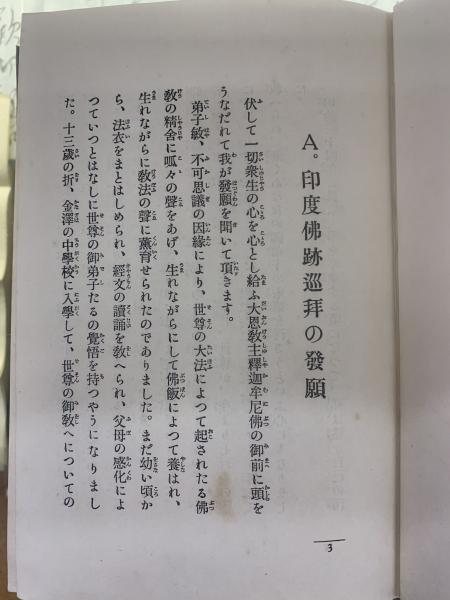 A。印度佛跡巡拜の發願
伏して一切衆生の心を心とし給ふ大恩敎主釋迦牟尼佛の御前に頭を
うなだれて我が發願を聞いて頂きます。
弟子敏、不可思議の因緣により、世尊の大法によつて起されたる佛
敎の精舍に呱々の聲をあげ、生れながらにして佛飯によつて養はれ、
生れながらに敎法の聲に薰育せられたのでありました。まだ幼い頃か
ら、法衣をまとはしめられ、經文の讀誦を敎へられ、父母の感化によ
つていつとはなしに世尊の御弟子たるの覺悟を持つやうになりまし
た。十三歲の折、金澤の中學校に入學して、世尊の御敎へについての
3